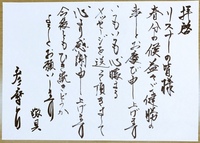 拝啓
リスナーの皆様
春分の候益々ご健勝の
事とお慶び申し上げます
いつも心暖まる
メッセージを送って頂きまして
心より感謝申し上げます
今後ともひき続きどうか
よろしくお願いします
敬具